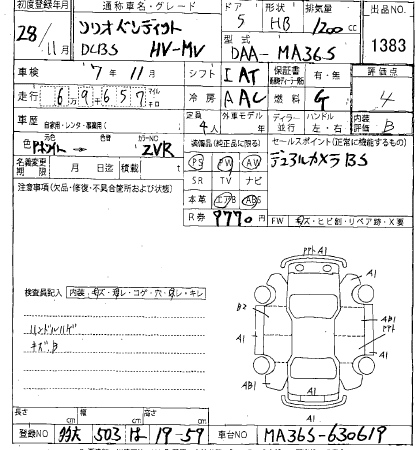 初度登録年月 通称車名・グレード ドア 形状 排気量 出品NO
28/11月 ソリオバンディット DCBS HV-MV 5 HB 1200cc 1383
型式 DAA-MA36S
車検 7年11月 シフト IAT 保証書 有・無 評価点 4
走行 69657 マイル キロ 冷房 AAC 燃料 G
車歴 自家用・レンタ・事業用( ) 定員 4人 外車モデル 年 ディーラー 並行 ハンドル 左・右 内装評価 B
色 カラーNO ZVR 装備品(純正品に限る) セールスポイント(正常に機能するもの)
PS PW AW デュアルカメラBS
名義変更期限 月 日迄 積載 t SR TV ナビ
注意事項(欠品・修復・不具合箇所および状態) 本革 エアB ABS
R券 9770円 FW キズ・ヒビ割・リペア跡・X要
検査員記入 内装 キズ・汚レ・コゲ・穴・切レ・キレ
ハンドルハゲ
キズ,B
A1
A1 A1
B2 AB1
A1 AB1
A1 A1
A1
長さ cm 幅 cm 高さ cm
登録NO 503 は 19-59 車台NO MA36S-630619